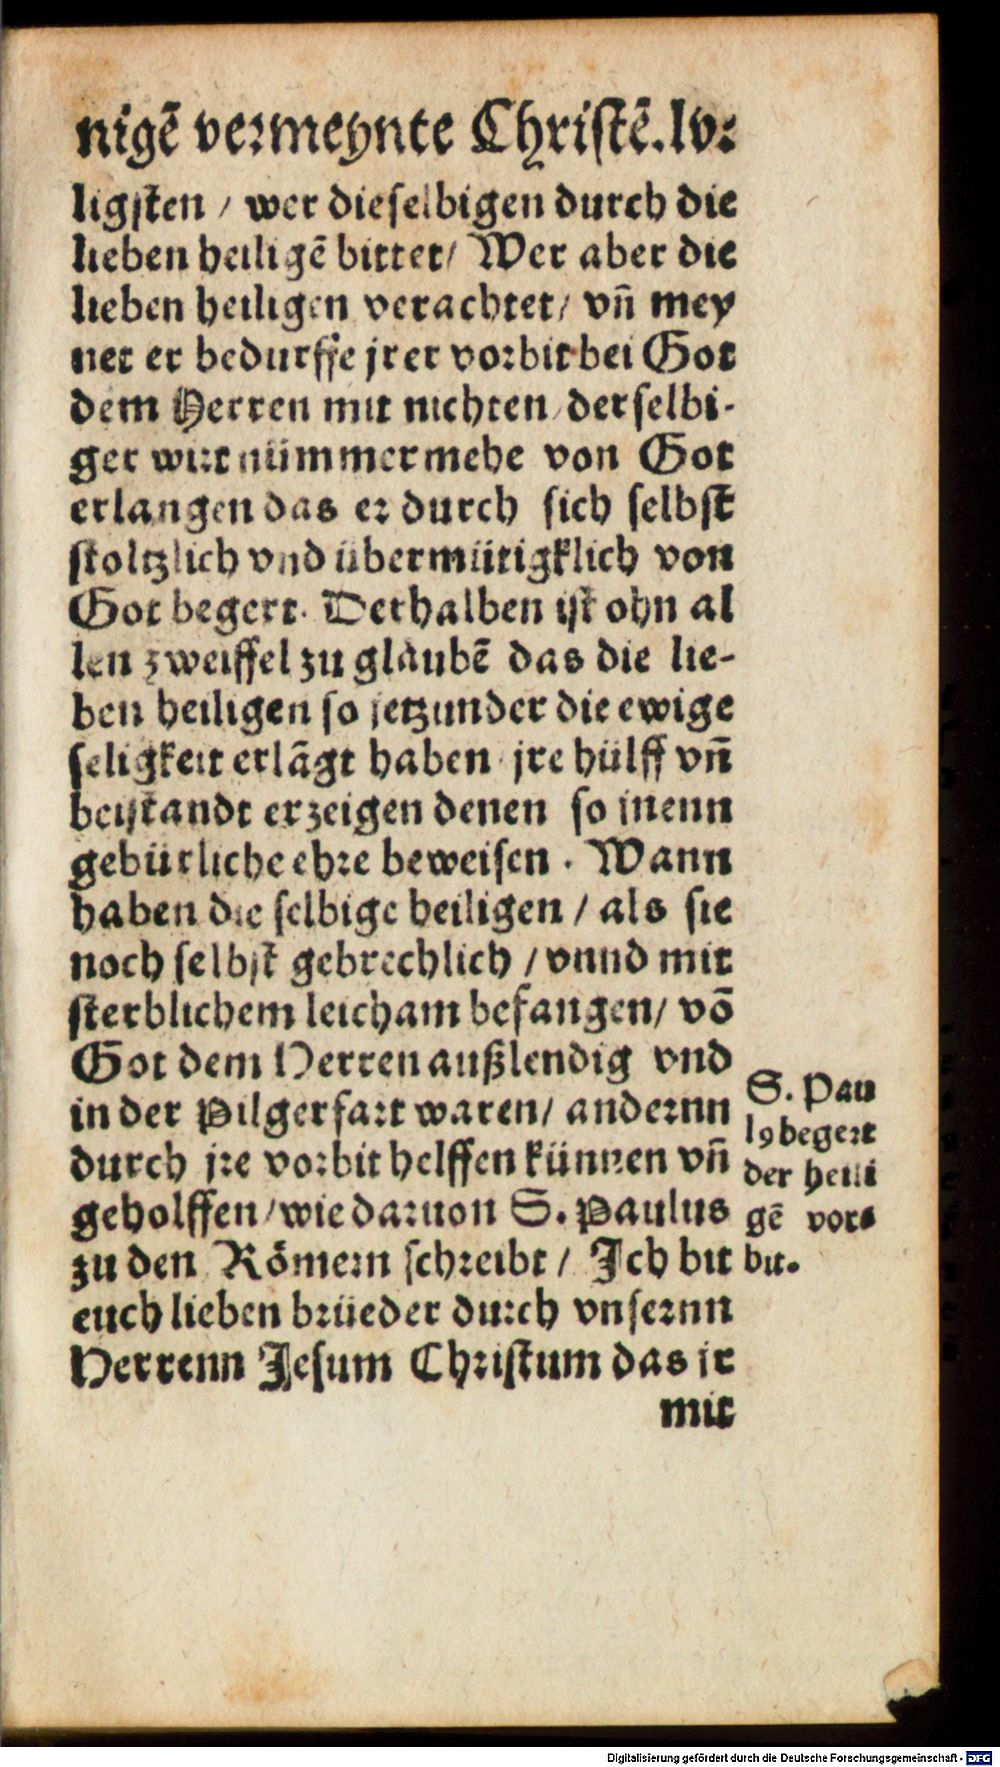 nigẽ vermeynte Christẽ. lv.
ligsten / wer dieselbigen durch die
lieben heiligẽ bittet / Wer aber die
lieben heiligen verachtet / vñ mey
net er bedurffe jrer vorbit bei Got
dem Herren mit nichten / derselbi-
ger wirt nümmermehe von Got
erlangen das er durch sich selbst
stoltzlich vnd übermütigklich von
Got begert. Derhalben ist ohn al
len zweiffel zu glaubẽ das die lie-
ben heiligen so jetzunder die ewige
seligkeit erlãgt haben jre hülff vñ
beistandt erzeigen denen so jnenn
gebürliche ehre beweisen. Wann
haben die selbige heiligen / als sie
noch selbst gebrechlich / vnnd mit
sterblichem leicham befangen / võ
Got dem Herren außlendig vnd
in der Pilgerfart waren / andernn
durch jre vorbit helffen künnen vñ
geholffen / wie daruon S. Paulus
zu den Römern schreibt / Ich bit
euch lieben brüeder durch vnsernn
Herrenn Jesum Christum das ir
mit
S. Pau
lꝰ begert
der heili
gẽ vor-
bit.
Digitalisierung gefördert durch die Deutsche Forschungsgemeinschaft - DFG